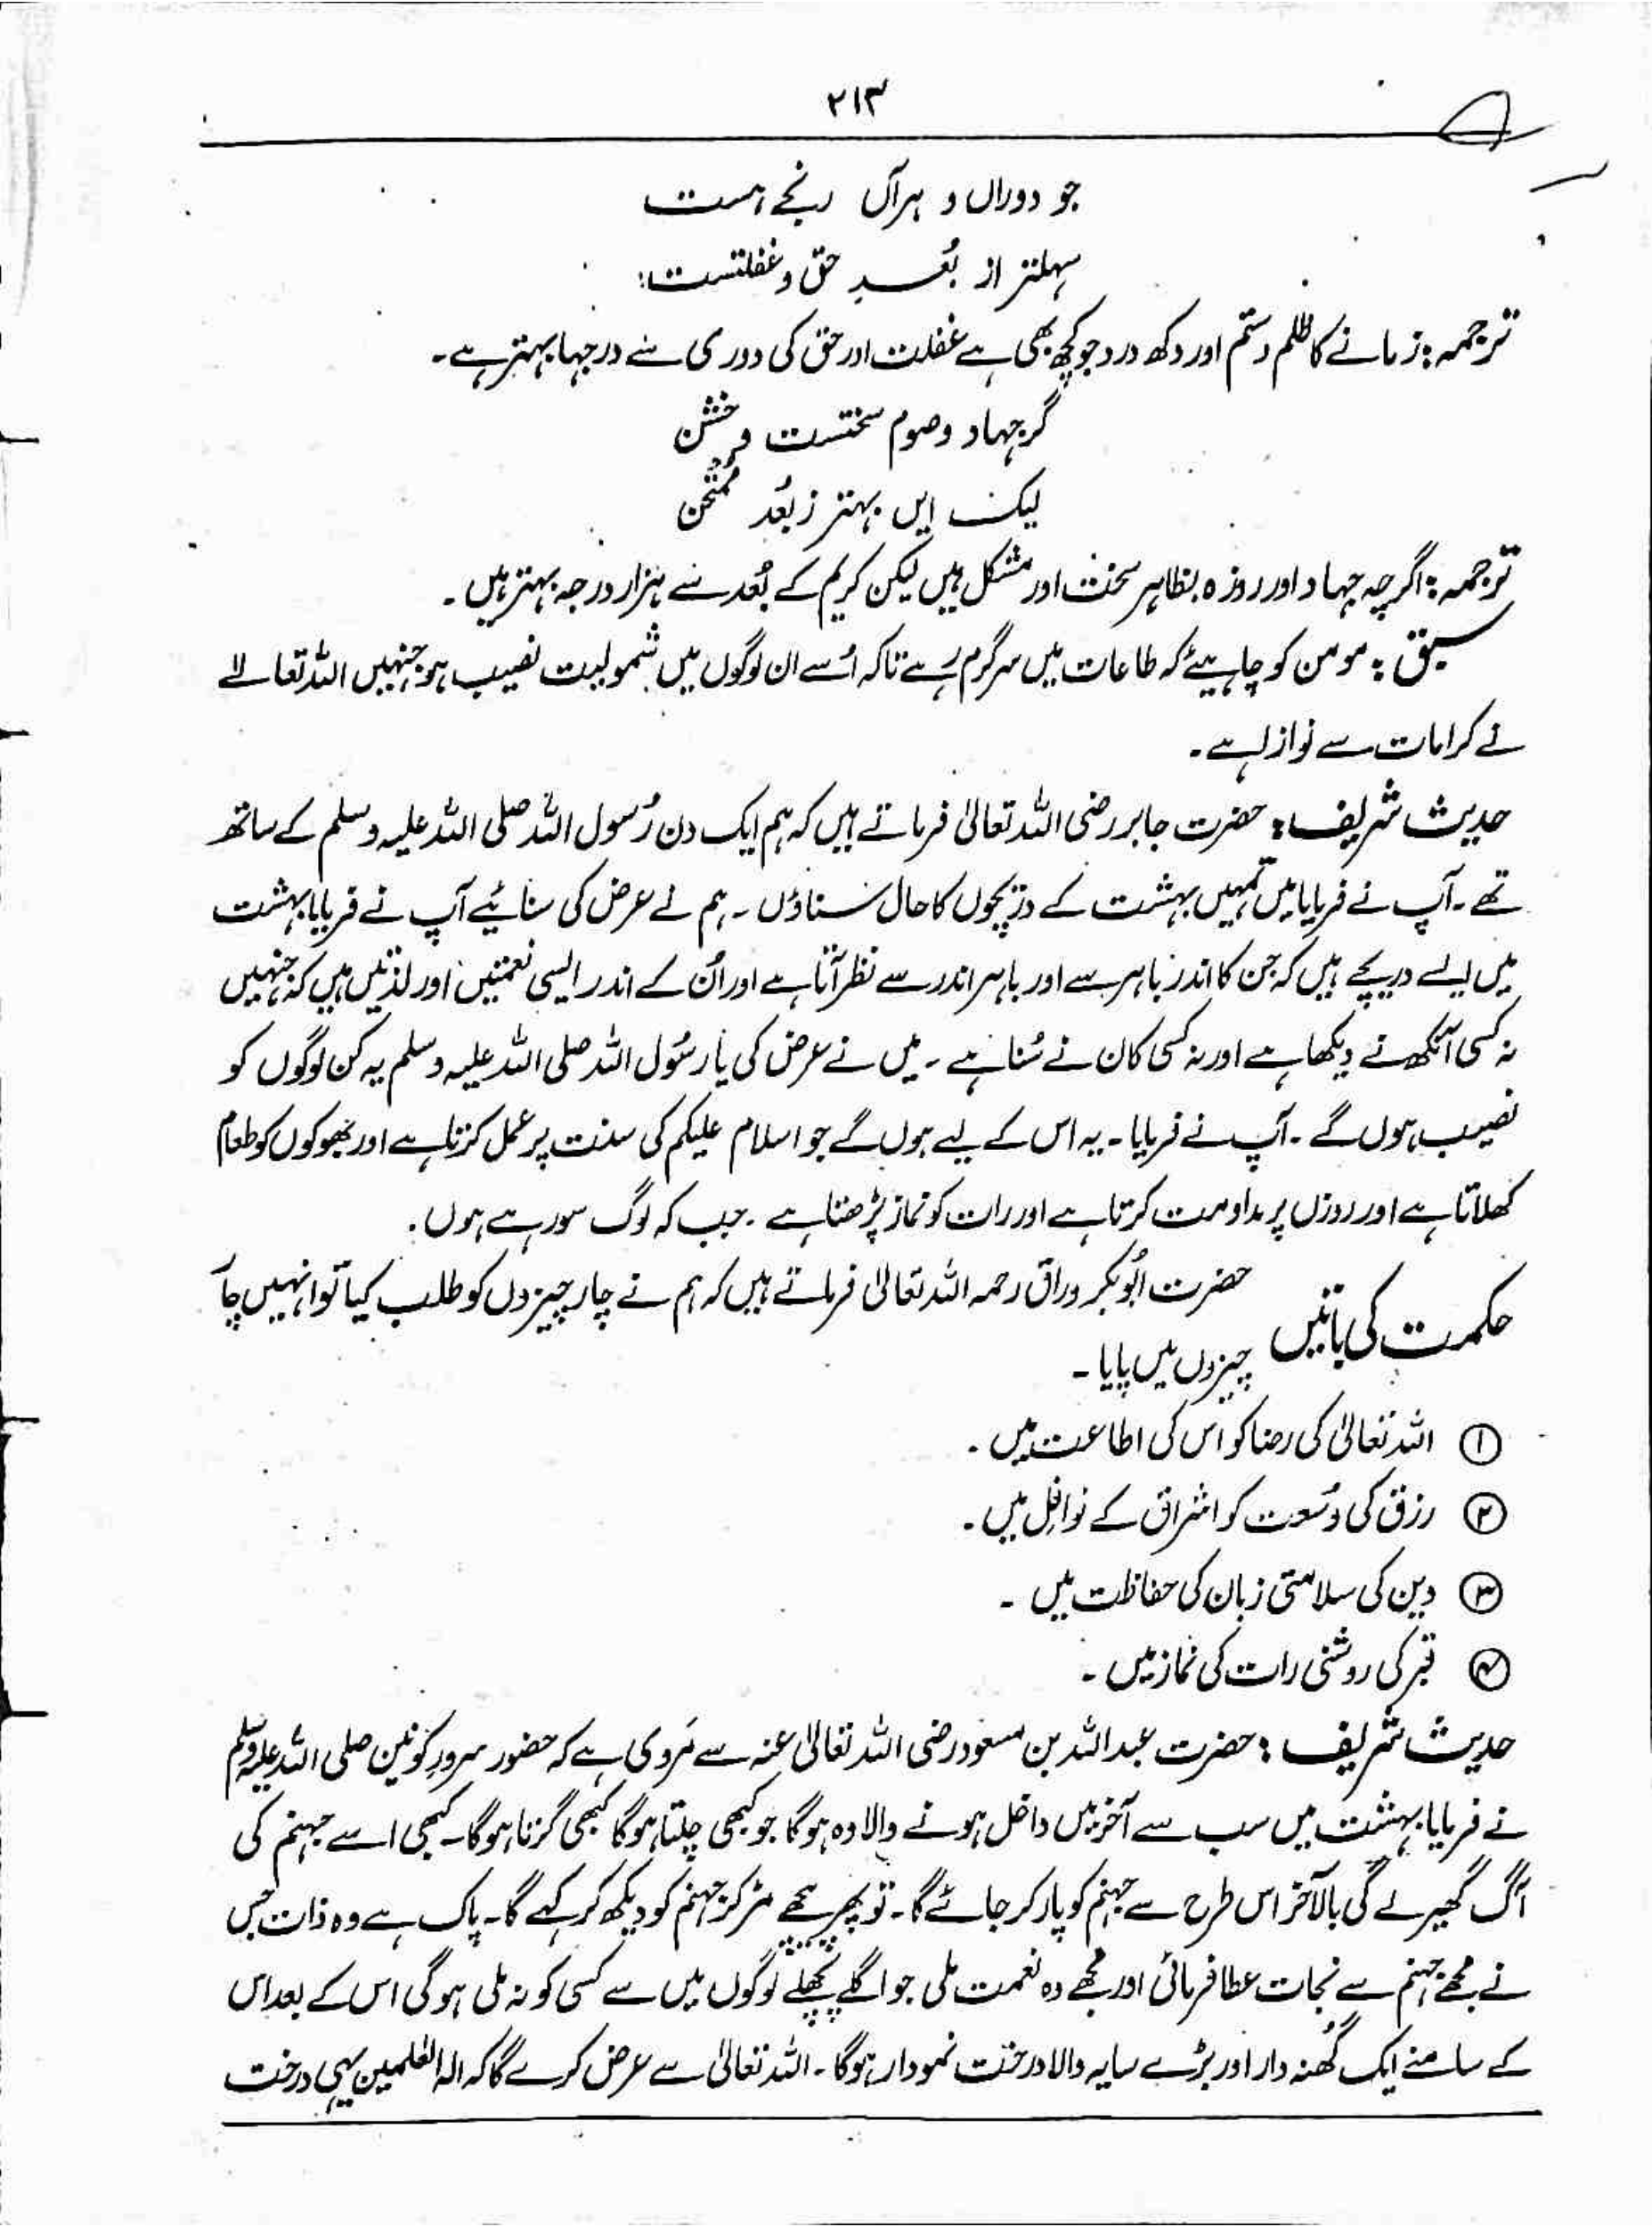 ۲۱۳
جو دوراں و ہرآں رنجے ہست
سہلتر از بُعدِ حق و غفلتست
ترجمہ: زمانے کا ظلم و ستم اور دکھ درد جو کچھ بھی ہے غفلت اور حق کی دوری سے درجہا بہتر ہے۔
گر جہاد و صوم سختست و خشن
لیک ایں بہتر ز بُعد ممتحن
ترجمہ: اگرچہ جہاد اور روزہ بظاہر سخت اور مشکل ہیں لیکن کریم کے بُعد سے ہزار درجہ بہتر ہیں۔
سبق: مومن کو چاہیئے کہ طاعات میں سرگرم رہے تاکہ اُسے ان لوگوں میں شمولیت نصیب ہو جنہیں اللہ تعالےٰ
نے کرامات سے نوازا ہے۔
حدیث شریف: حضرت جابر رضی اللہ تعالیٰ فرماتے ہیں کہ ہم ایک دن رُسول اللہ صلی اللہ علیہ وسلم کے ساتھ
تھے۔ آپ نے فرمایا میں تمہیں بہشت کے دریچوں کا حال سناؤں۔ ہم نے عرض کی سنائیے آپ نے فرمایا بہشت
میں ایسے دریچے ہیں کہ جن کا اندر باہر سے اور باہر اندر سے نظر آتا ہے اور اُن کے اندر ایسی نعمتیں اور لذتیں ہیں کہ جنہیں
نہ کسی آنکھ نے دیکھا ہے اور نہ کسی کان نے سُنا ہے۔ میں نے عرض کی یا رسُول اللہ صلی اللہ علیہ وسلم یہ کن لوگوں کو
نصیب ہوں گے۔ آپ نے فرمایا۔ یہ اس کے لیے ہوں گے جو اسلام علیکم کی سنت پر عمل کرتا ہے اور بھوکوں کو طعام
کھلاتا ہے اور روزں پر مداومت کرتا ہے اور رات کو نماز پڑھتا ہے۔ جب کہ لوگ سو رہے ہوں۔
حکمت کی باتیں حضرت ابُوبکر وراق رحمہ اللہ تعالیٰ فرماتے ہیں کہ ہم نے چار چیزوں کو طلب کیا تو انہیں چار
چیزوں میں پایا۔
① اللہ تعالیٰ کی رضا کو اس کی اطاعت میں۔
② رزق کی وُسعت کو اشراق کے نوافل میں۔
③ دین کی سلامتی زبان کی حفاظت میں۔
④ قبر کی روشنی رات کی نماز میں۔
حدیث شریف: حضرت عبداللہ بن مسعود رضی اللہ تعالیٰ عنہ سے مَروی ہے کہ حضور سرورِ کونین صلی اللہ علیہ وسلم
نے فرمایا بہشت میں سب سے آخر میں داخل ہونے والا وہ ہوگا جو کبھی چلتا ہوگا کبھی گرتا ہوگا۔ کبھی اسے جہنم کی
آگ گھیر لے گی بالآخر اس طرح سے جہنم کو پار کر جائے گا۔ تو پھر پیچھے مڑ کر جہنم کو دیکھ کر کہے گا۔ پاک ہے وہ ذات جس
نے مجھے جہنم سے نجات عطا فرمائی اور مجھے وہ نعمت ملی جو اگلے پچھلے لوگوں میں سے کسی کو نہ ملی ہوگی اس کے بعد اس
کے سامنے ایک گُھنہ دار اور بڑے سایہ والا درخت نمودار ہوگا۔ اللہ تعالیٰ سے عرض کرے گا کہ الٰہ العٰلمین یہی درخت